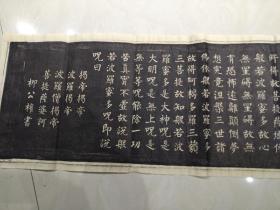 般若波羅蜜多故心
無罣礙無罣礙故無
有恐怖遠離顛倒夢
想究竟涅槃三世諸
佛依般若波羅蜜多
故得阿耨多羅三藐
三菩提故知般若波
羅蜜多是大神咒是
大明咒是無上咒是
無等等咒能除一切
苦真實不虛故說般
若波羅蜜多咒即說
咒曰
揭帝揭帝
波羅揭帝
波羅僧揭帝
菩提薩婆訶
柳公權書